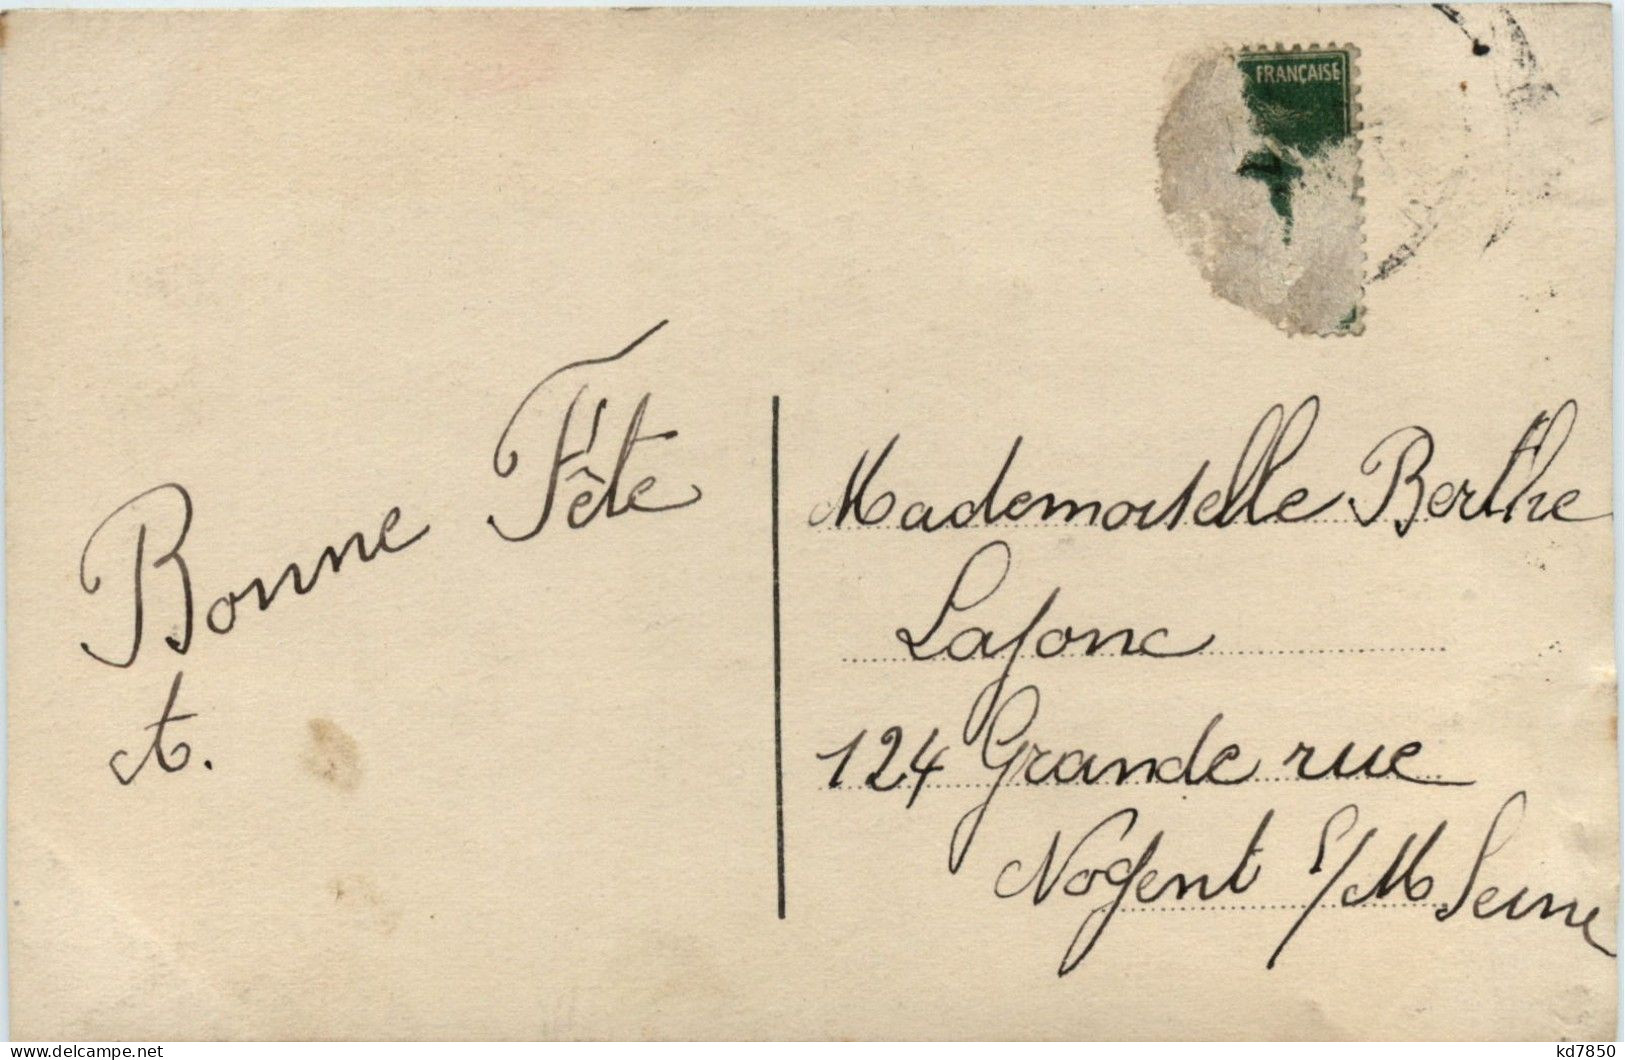 FRANÇAISE
Bonne Fête
A.
Mademoiselle Berthe
Lafonc
124 Grande rue
Nogent s/M. Seine
delcampe.net
kd7850